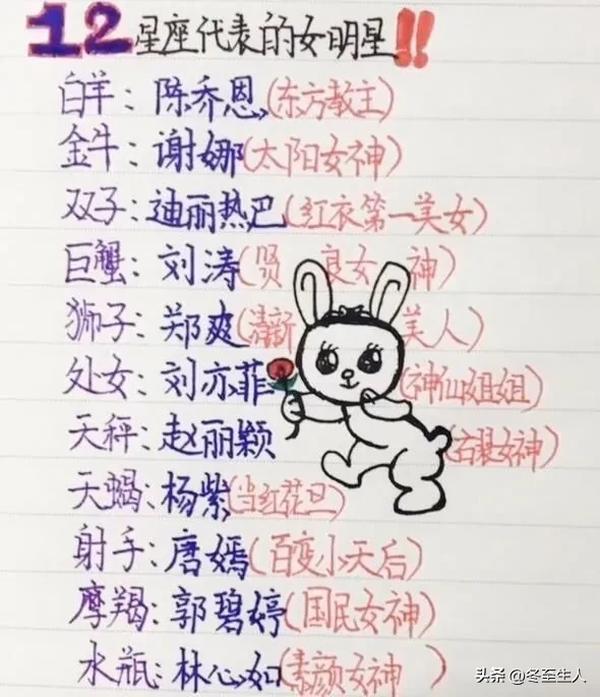 12星座代表的女明星!!
白羊:陈乔恩(东方教主)
金牛:谢娜(太阳女神)
双子:迪丽热巴(红衣第一美女)
巨蟹:刘涛(贤良女神)
狮子:郑爽(清新美人)
处女:刘亦菲(神仙姐姐)
天秤:赵丽颖(古装女神)
天蝎:杨紫(当红花旦)
射手:唐嫣(百变小天后)
摩羯:郭碧婷(国民女神)
水瓶:林心如(素颜女神)
头条@冬至生人